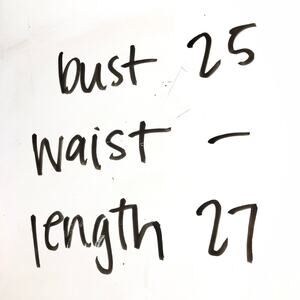 bust 25
waist -
length 27